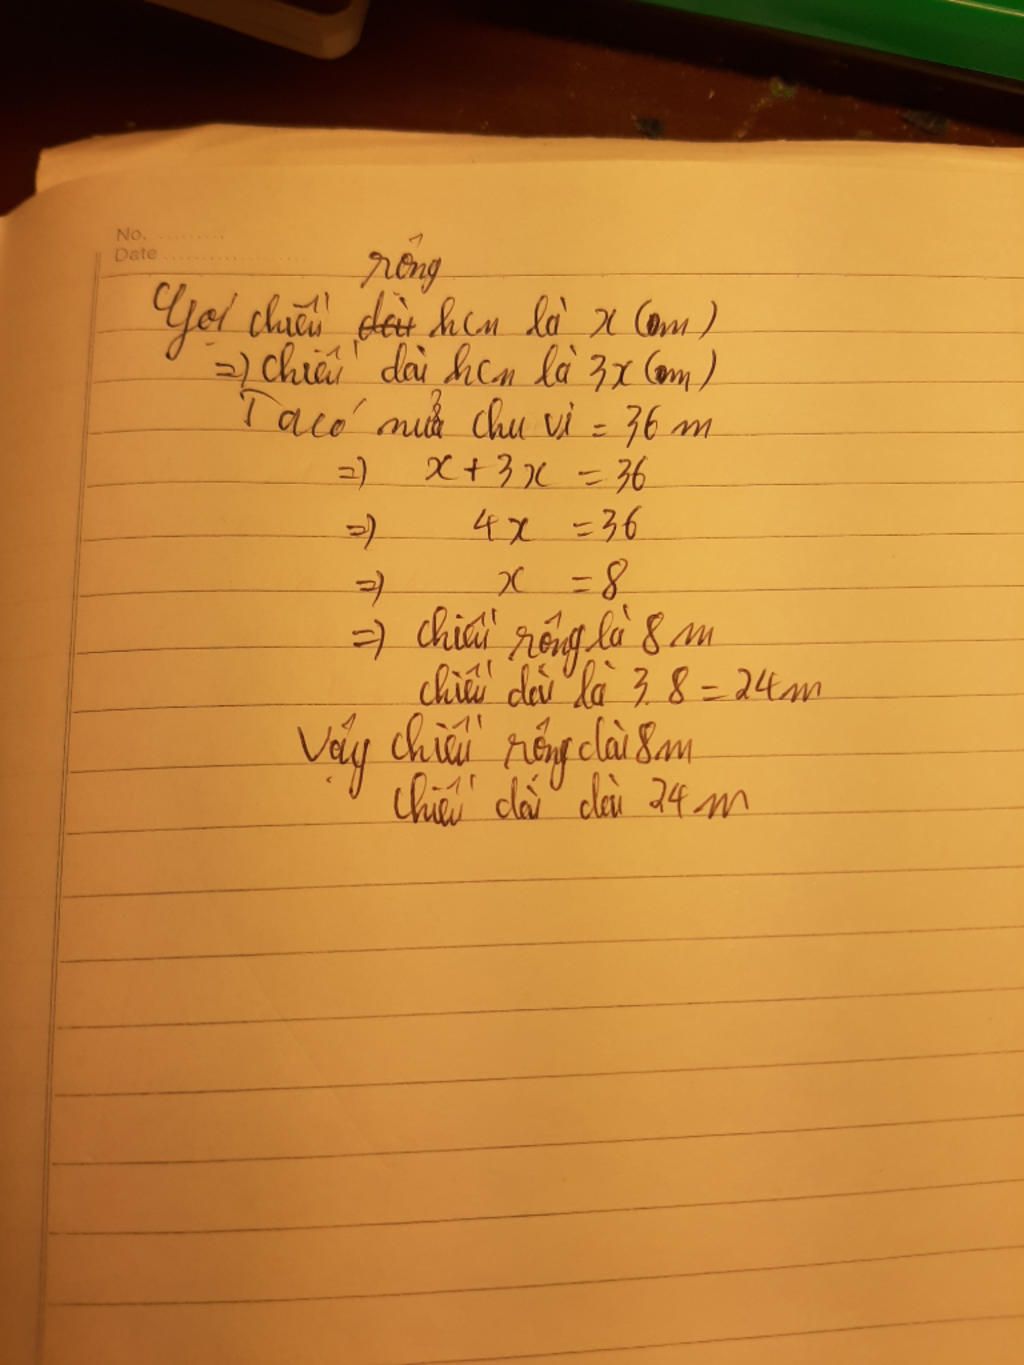 No. ..........
Date ......................
rộng
Gọi chiều dài hcn là x (m)
=) chiều dài hcn là 3x (m)
Ta có nửa chu vi = 36 m
=) x + 3x = 36
=) 4x = 36
=) x = 8
=) chiều rộng là 8 m
chiều dài là 3.8 = 24 m
Vậy chiều rộng dài 8m
chiều dài dài 24 m